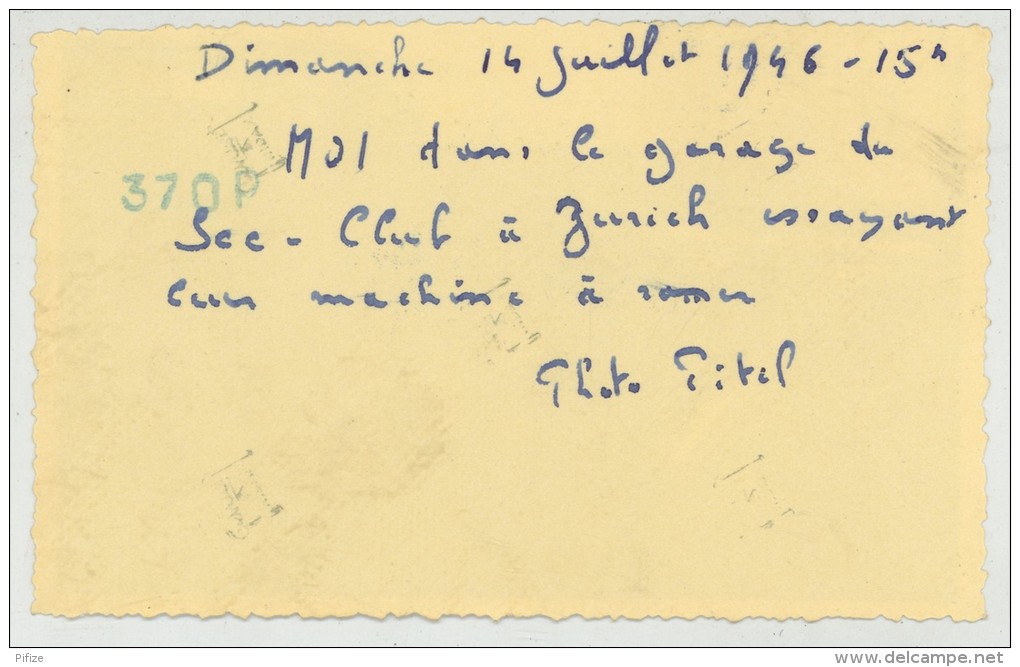 Dimanche 14 Juillet 1946 - 15h
MOI dans le garage du
370P
See-Club à Zurich essayant
leur machine à ramer
Photo Pitel
Pifize
www.delcampe.net